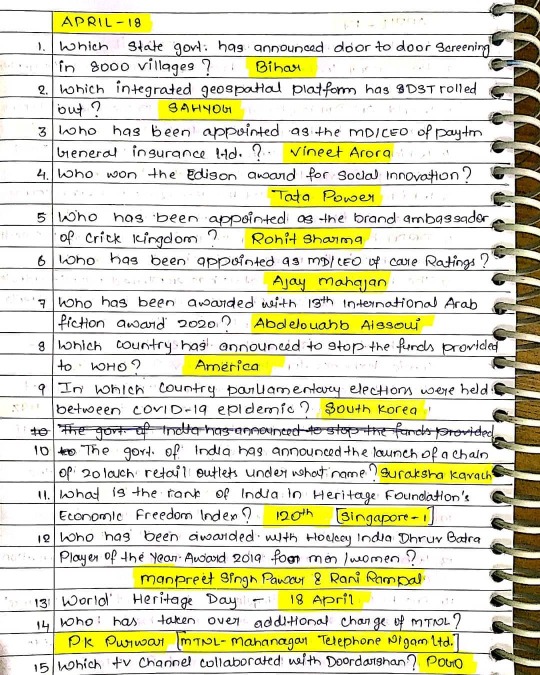 APRIL-18
1. Which State govt. has announced door to door Screening
in 8000 villages? Bihar
2. Which integrated geospatial platform has SDST rolled
out? SAHYOG
3 Who has been appointed as the MD/CEO of paytm
General insurance ltd.? Vineet Arora
4. Who won the Edison award for Social Innovation?
Tata Power
5 Who has been appointed as the brand ambassador
of Crick Kingdom? Rohit Sharma
6 Who has been appointed as MD/CEO of Care Ratings?
Ajay Mahajan
7 Who has been awarded with 13th International Arab
fiction award 2020? Abdelouahb Aissoui
8 Which Country has announced to stop the funds provided
to WHO? America
9 In Which Country parliamentary elections were held
between COVID-19 epidemic? South Korea
10 The govt. of India has announced to stop the funds provided
10 to The govt. of India has announced the launch of a chain
of 20 lakh retail outlets under what name? Suraksha Kavach
11. What is the rank of India in Heritage Foundation's
Economic Freedom Index? 120th [Singapore-1]
12 Who has been awarded with Hockey India Dhruv Batra
Player of the Year Award 2019 for men/women?
Manpreet Singh Pawar & Rani Rampal
13 World Heritage Day - 18 April
14 Who has taken over additional charge of MTNL?
PK Purwar [MTNL-Mahanagar Telephone Nigam Ltd.]
15 Which tv Channel collaborated with Doordarshan? POGO